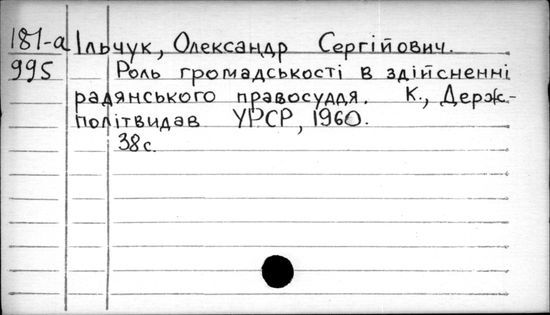 181-а Ільчук, Олександр Сергійович.
995 Роль громадськості в здійсненні
радянського правосуддя. К., Держ-
політвидав УРСР, 1960.
38 с.